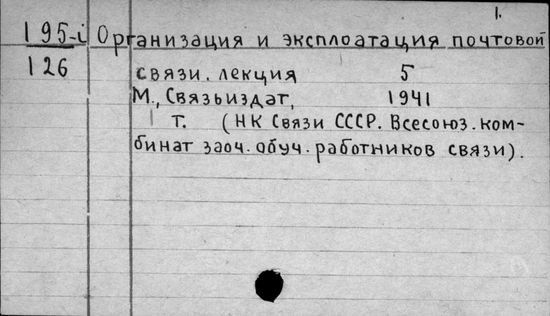 1.
195-i Организация и эксплоатация почтовой
126 связи. лекция 5
М., Связьиздат, 1941
1 т. (НК Связи СССР. Всесоюз. ком-
бинат заоч. обуч. работников связи).